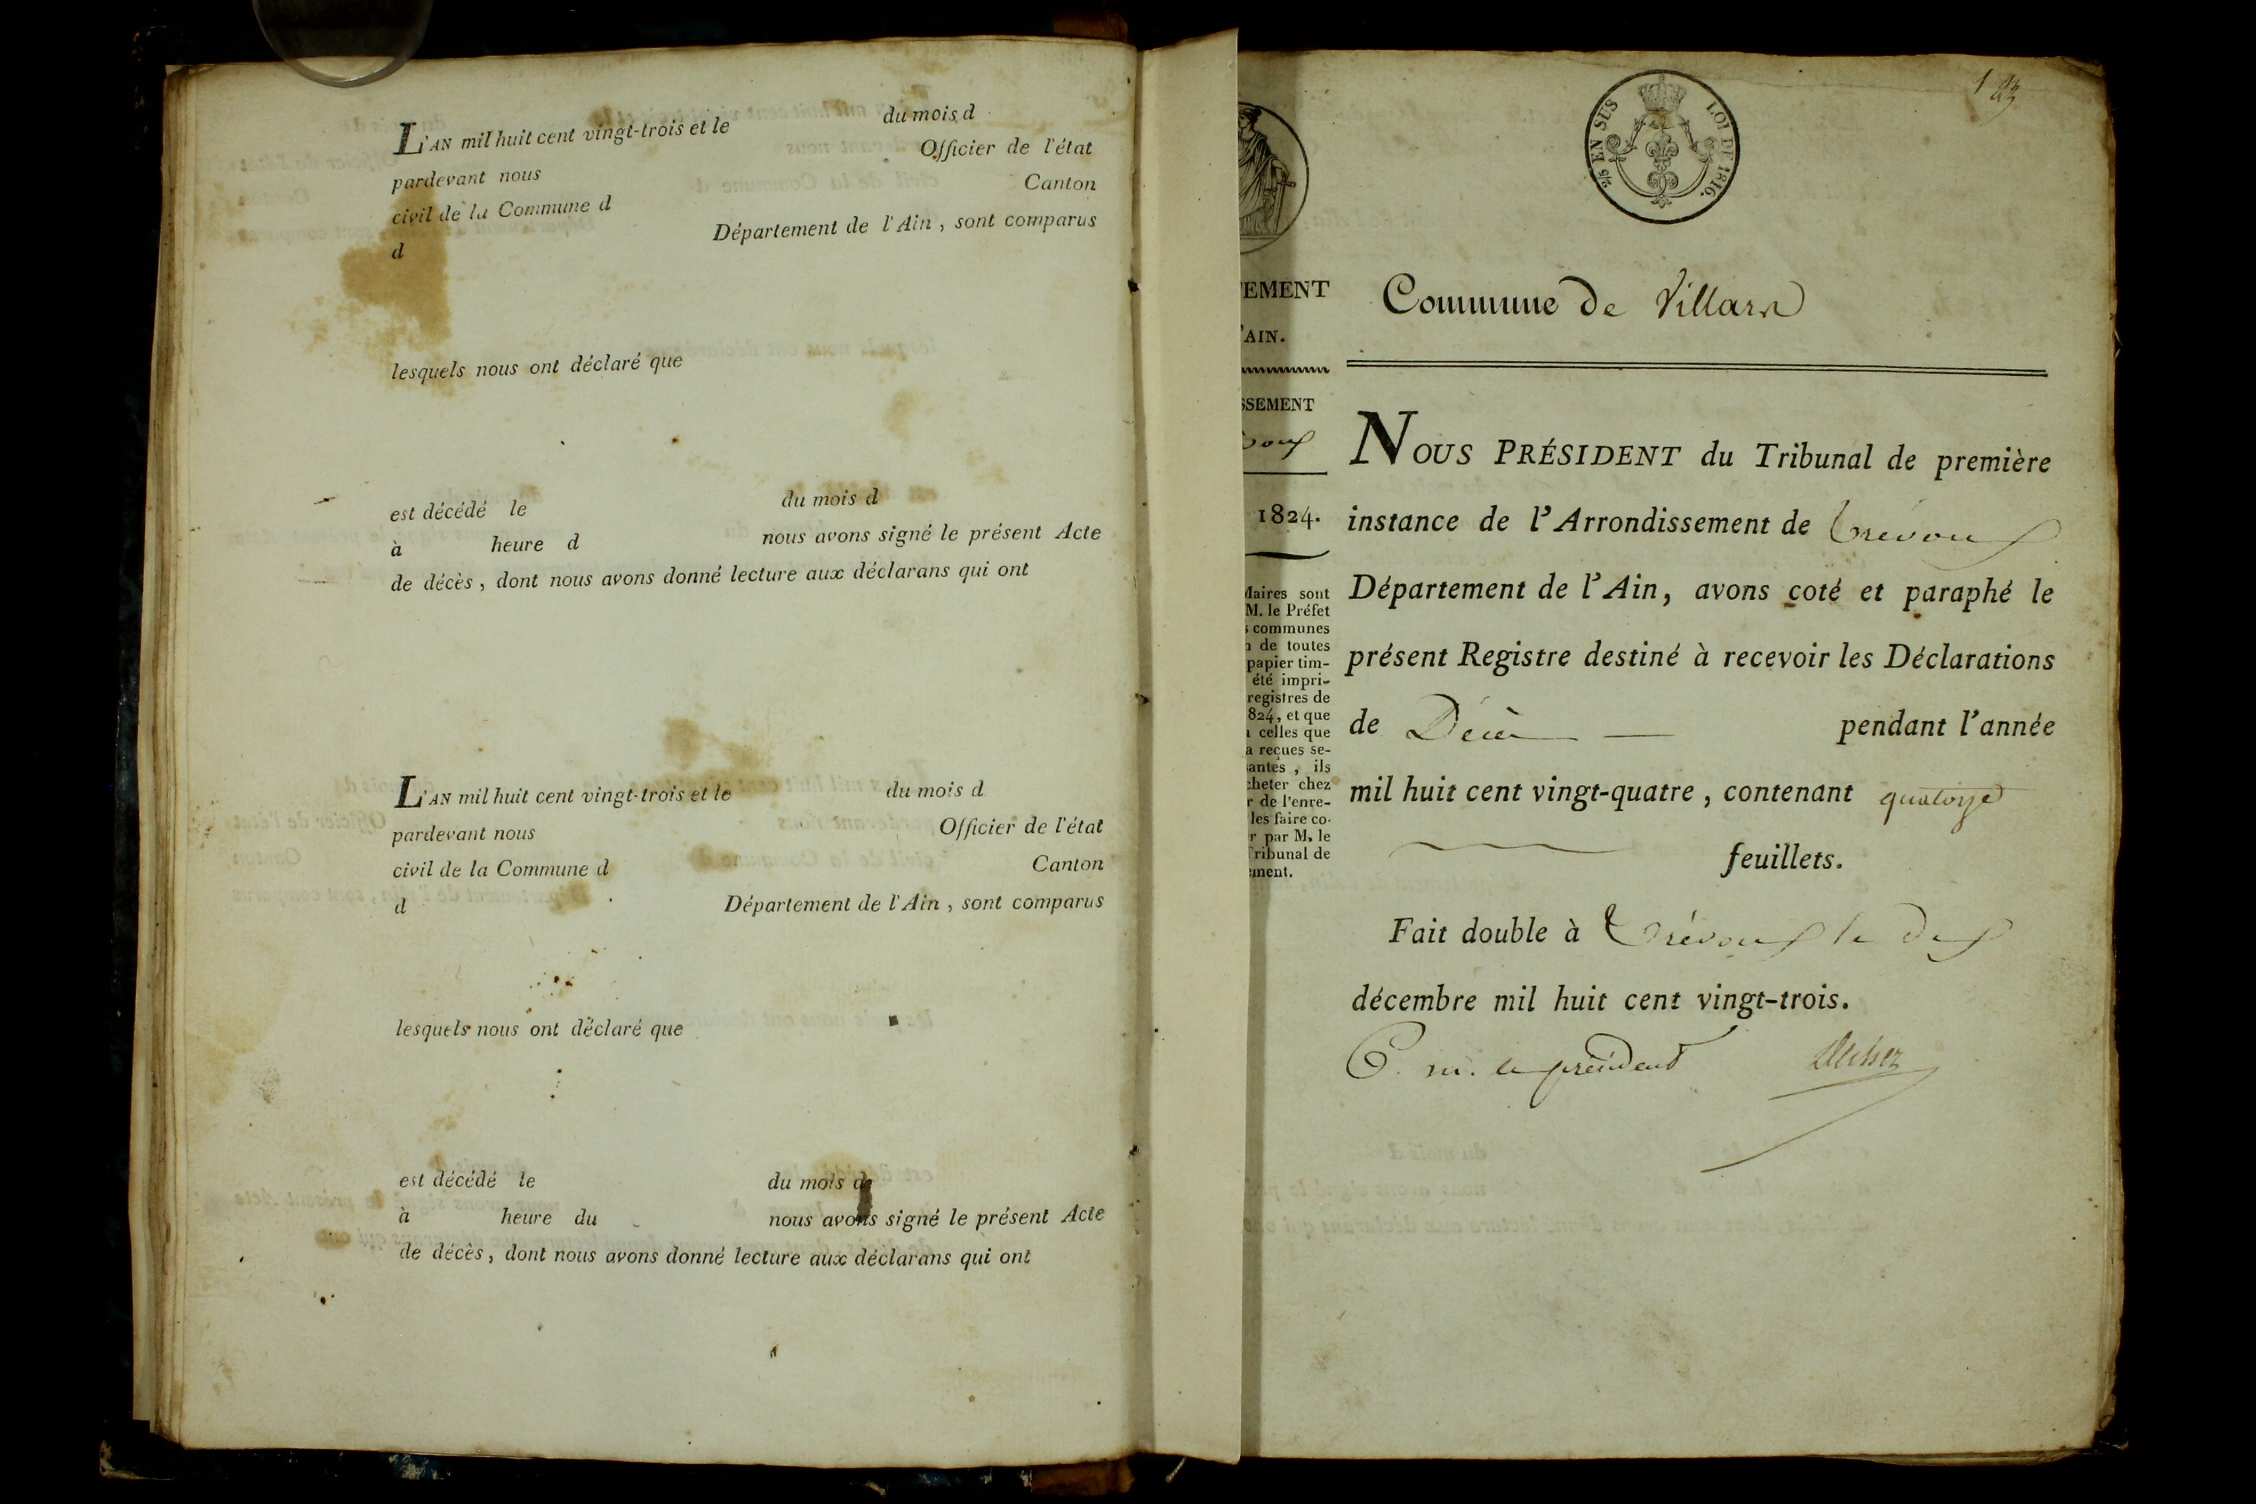 L'AN mil huit cent vingt-trois et le du mois d
pardevant nous Officier de l'état
civil de la Commune d Canton
d Département de l'Ain, sont comparus
lesquels nous ont déclaré que
est décédé le du mois d
à heure d nous avons signé le présent Acte
de décès, dont nous avons donné lecture aux déclarans qui ont
L'AN mil huit cent vingt-trois et le du mois d
pardevant nous Officier de l'état
civil de la Commune d Canton
d Département de l'Ain, sont comparus
lesquels nous ont déclaré que
est décédé le du mois d
à heure du nous avons signé le présent Acte
de décès, dont nous avons donné lecture aux déclarans qui ont
2/5 EN SUS LOI DE 1816.
TEMENT
'AIN.
SSEMENT
voux
1824.
Maires sont
M. le Préfet
s communes
n de toutes
papier tim-
été impri-
registres de
824, et que
à celles que
a reçues se-
santes, ils
cheter chez
r de l'enre-
les faire co-
r par M. le
Tribunal de
ement.
1
Commune de Villars
NOUS PRÉSIDENT du Tribunal de première
instance de l'Arrondissement de Trévoux
Département de l'Ain, avons coté et paraphé le
présent Registre destiné à recevoir les Déclarations
de Décès pendant l'année
mil huit cent vingt-quatre, contenant quatorze
feuillets.
Fait double à Trévoux le dix
décembre mil huit cent vingt-trois.
P. m. le président